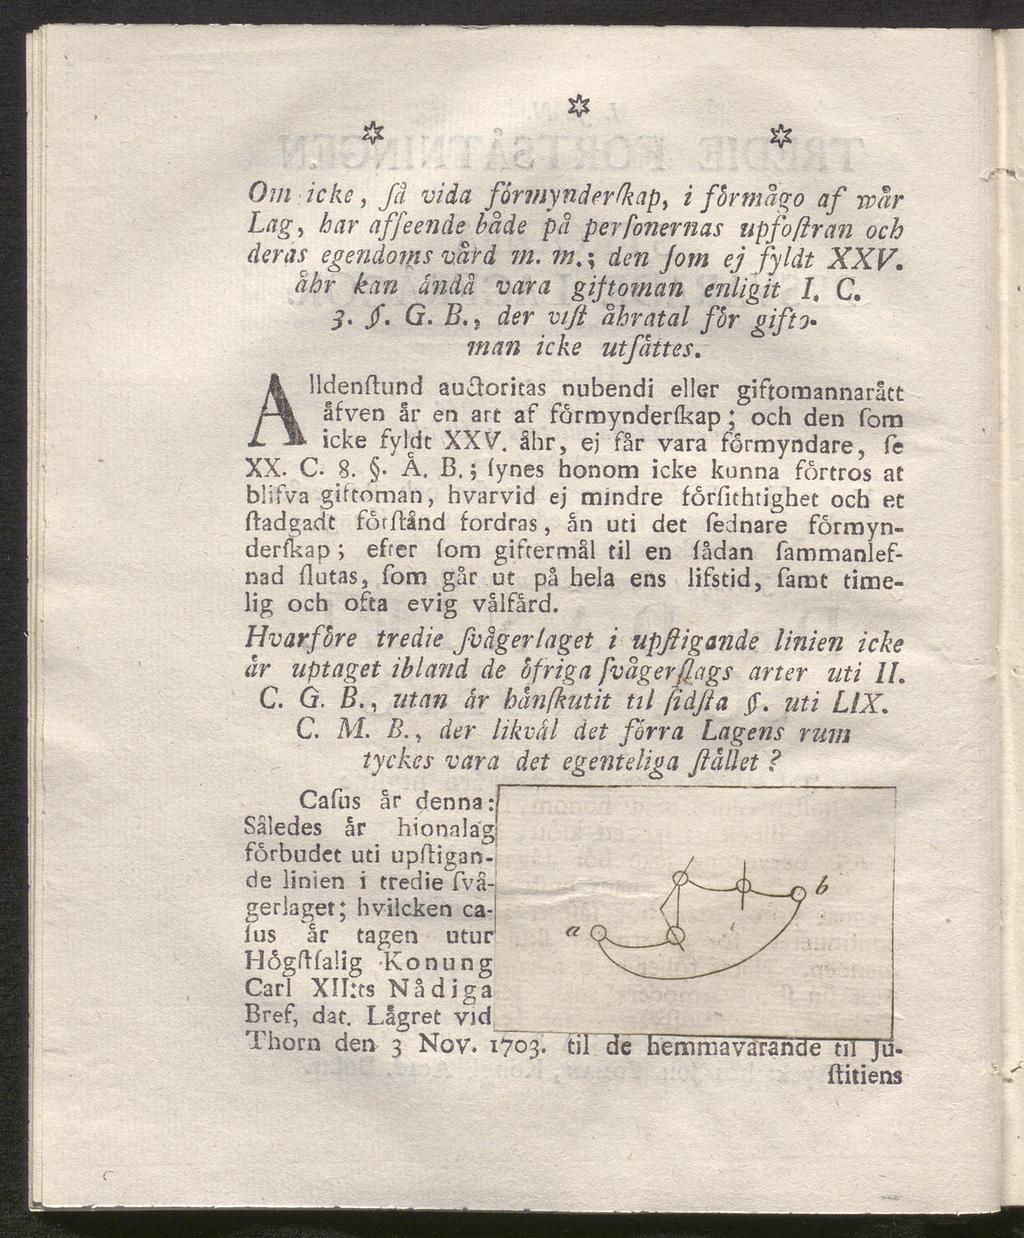 Om icke, ſå vida förmynderſkap, i förmågo af wår
Lag, har afſeende både på perſonernas upfoſtran och
deras egendoms vård m. m.; den ſom ej fyldt XXV.
åhr kan ändå vara giftoman enligit I. C.
3. §. G. B., der viſt åhratal för gifto-
man icke utſättes.
Alldenſtund auctoritas nubendi eller giftomannarått
åfven år en art af förmynderſkap; och den ſom
icke fyldt XXV. åhr, ej får vara förmyndare, ſe
XX. C. 8. §. Å. B.; ſynes honom icke kunna förtros at
blifva giftoman, hvarvid ej mindre förſithtighet och et
ſtadgadt förſtånd fordras, ån uti det ſednare förmyn-
derſkap; efter ſom giftermål til en ſådan ſammanlef-
nad ſlutas, ſom går ut på hela ens lifstid, ſamt time-
lig och ofta evig välfård.
Hvarföre tredie ſvågerlaget i upſtigande linien icke
är uptaget ibland de öfriga ſvågerſlags arter uti II.
C. G. B., utan är hänſkutit til ſidſta §. uti LIX.
C. M. B., der likväl det förra Lagens rum
tyckes vara det egenteliga ſtället?
Caſus år denna:
Således år hionalag
förbudet uti upſtigan-
de linien i tredie ſvå-
gerlaget; hvilcken ca-
ſus år tagen utur
Högſtſalig Konung
Carl XII:ts Nådiga
Bref, dat. Lägret vid
a b
Thorn den 3 Nov. 1703. til de hemmavarande til Ju-
ſtitiens